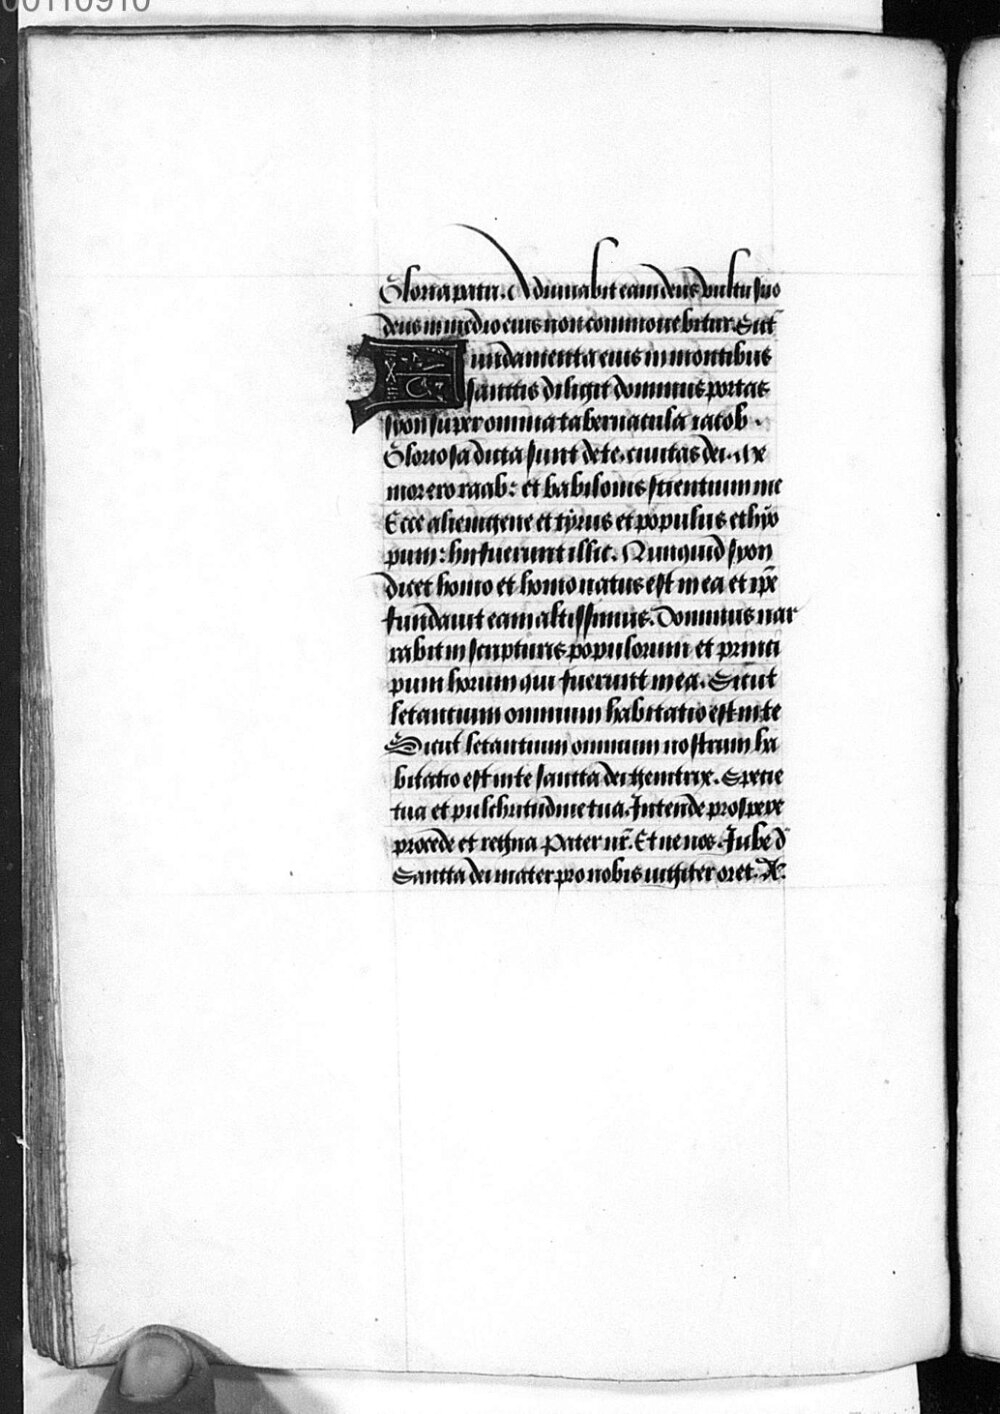 00110910
Gloria patri. Adiuuabit eam deus vultu suo
deus in medio eius non commouebitur. Sicut̄
Fundamenta eius in montibus
sanctis diligit dominus portas
syon super omnia tabernacula iacob.
Gloriosa dicta sunt de te. ciuitas dei. Me
mor ero raab: et babilonis scientium me
Ecce alienigene et tyrus et populus ethyo
pum: hii fuerunt illic. Nunquid syon
dicet homo et homo natus est in ea et ip̄e
fundauit eam altissimus. Dominus nar
rabit in scripturis populorum et princi
pum horum qui fuerunt in ea. Sicut
letantium omnium habitatio est in te
Sicut letantium omnium nostrum ha
bitatio est in te sancta dei genitrix. Specie
tua et pulchritudine tua. Intende prospere
procede et regna Pater nr̄. Et ne nos. Jube d̄
Sancta dei mater pro nobis iugiter oret. &c.